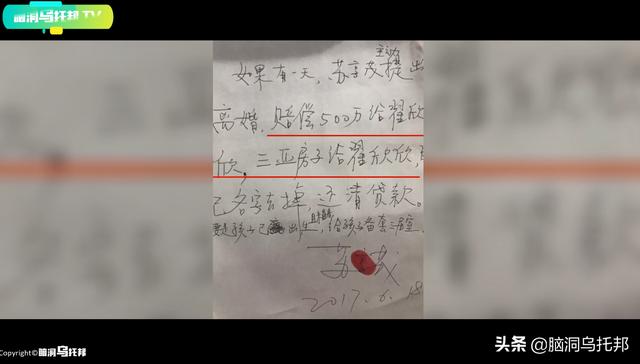 脑洞乌托邦TV
如果有一天，苏享茂主动提出
离婚，赔偿500万给翟欣
欣，三亚房子给翟欣欣，
己名字去掉，还清贷款。
孩子已出生，给孩子备套三居室
苏享茂
2017.6.18
Copyright©脑洞乌托邦
头条@脑洞乌托邦